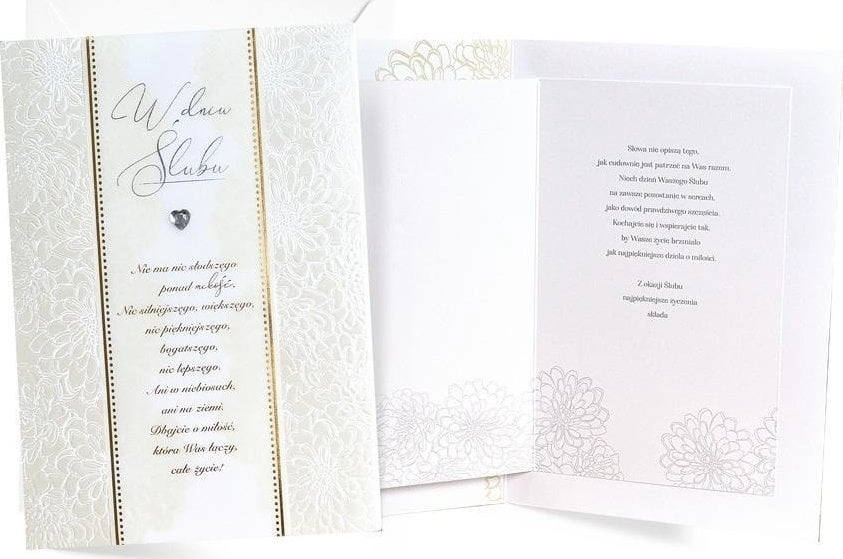 W dniu
Ślubu
Nie ma nic słodszego
ponad miłość.
Nic silniejszego, większego,
nic piękniejszego,
bogatszego,
nic lepszego.
Ani w niebiosach,
ani na ziemi.
Dbajcie o miłość,
która Was łączy,
całe życie!
Słowa nie opiszą tego,
jak cudownie jest patrzeć na Was razem.
Niech dzień Waszego Ślubu
na zawsze pozostanie w sercach,
jako dowód prawdziwego szczęścia.
Kochajcie się i wspierajcie tak,
by Wasze życie brzmiało
jak najpiękniejsze dzieła o miłości.
Z okazji Ślubu
najpiękniejsze życzenia
składa